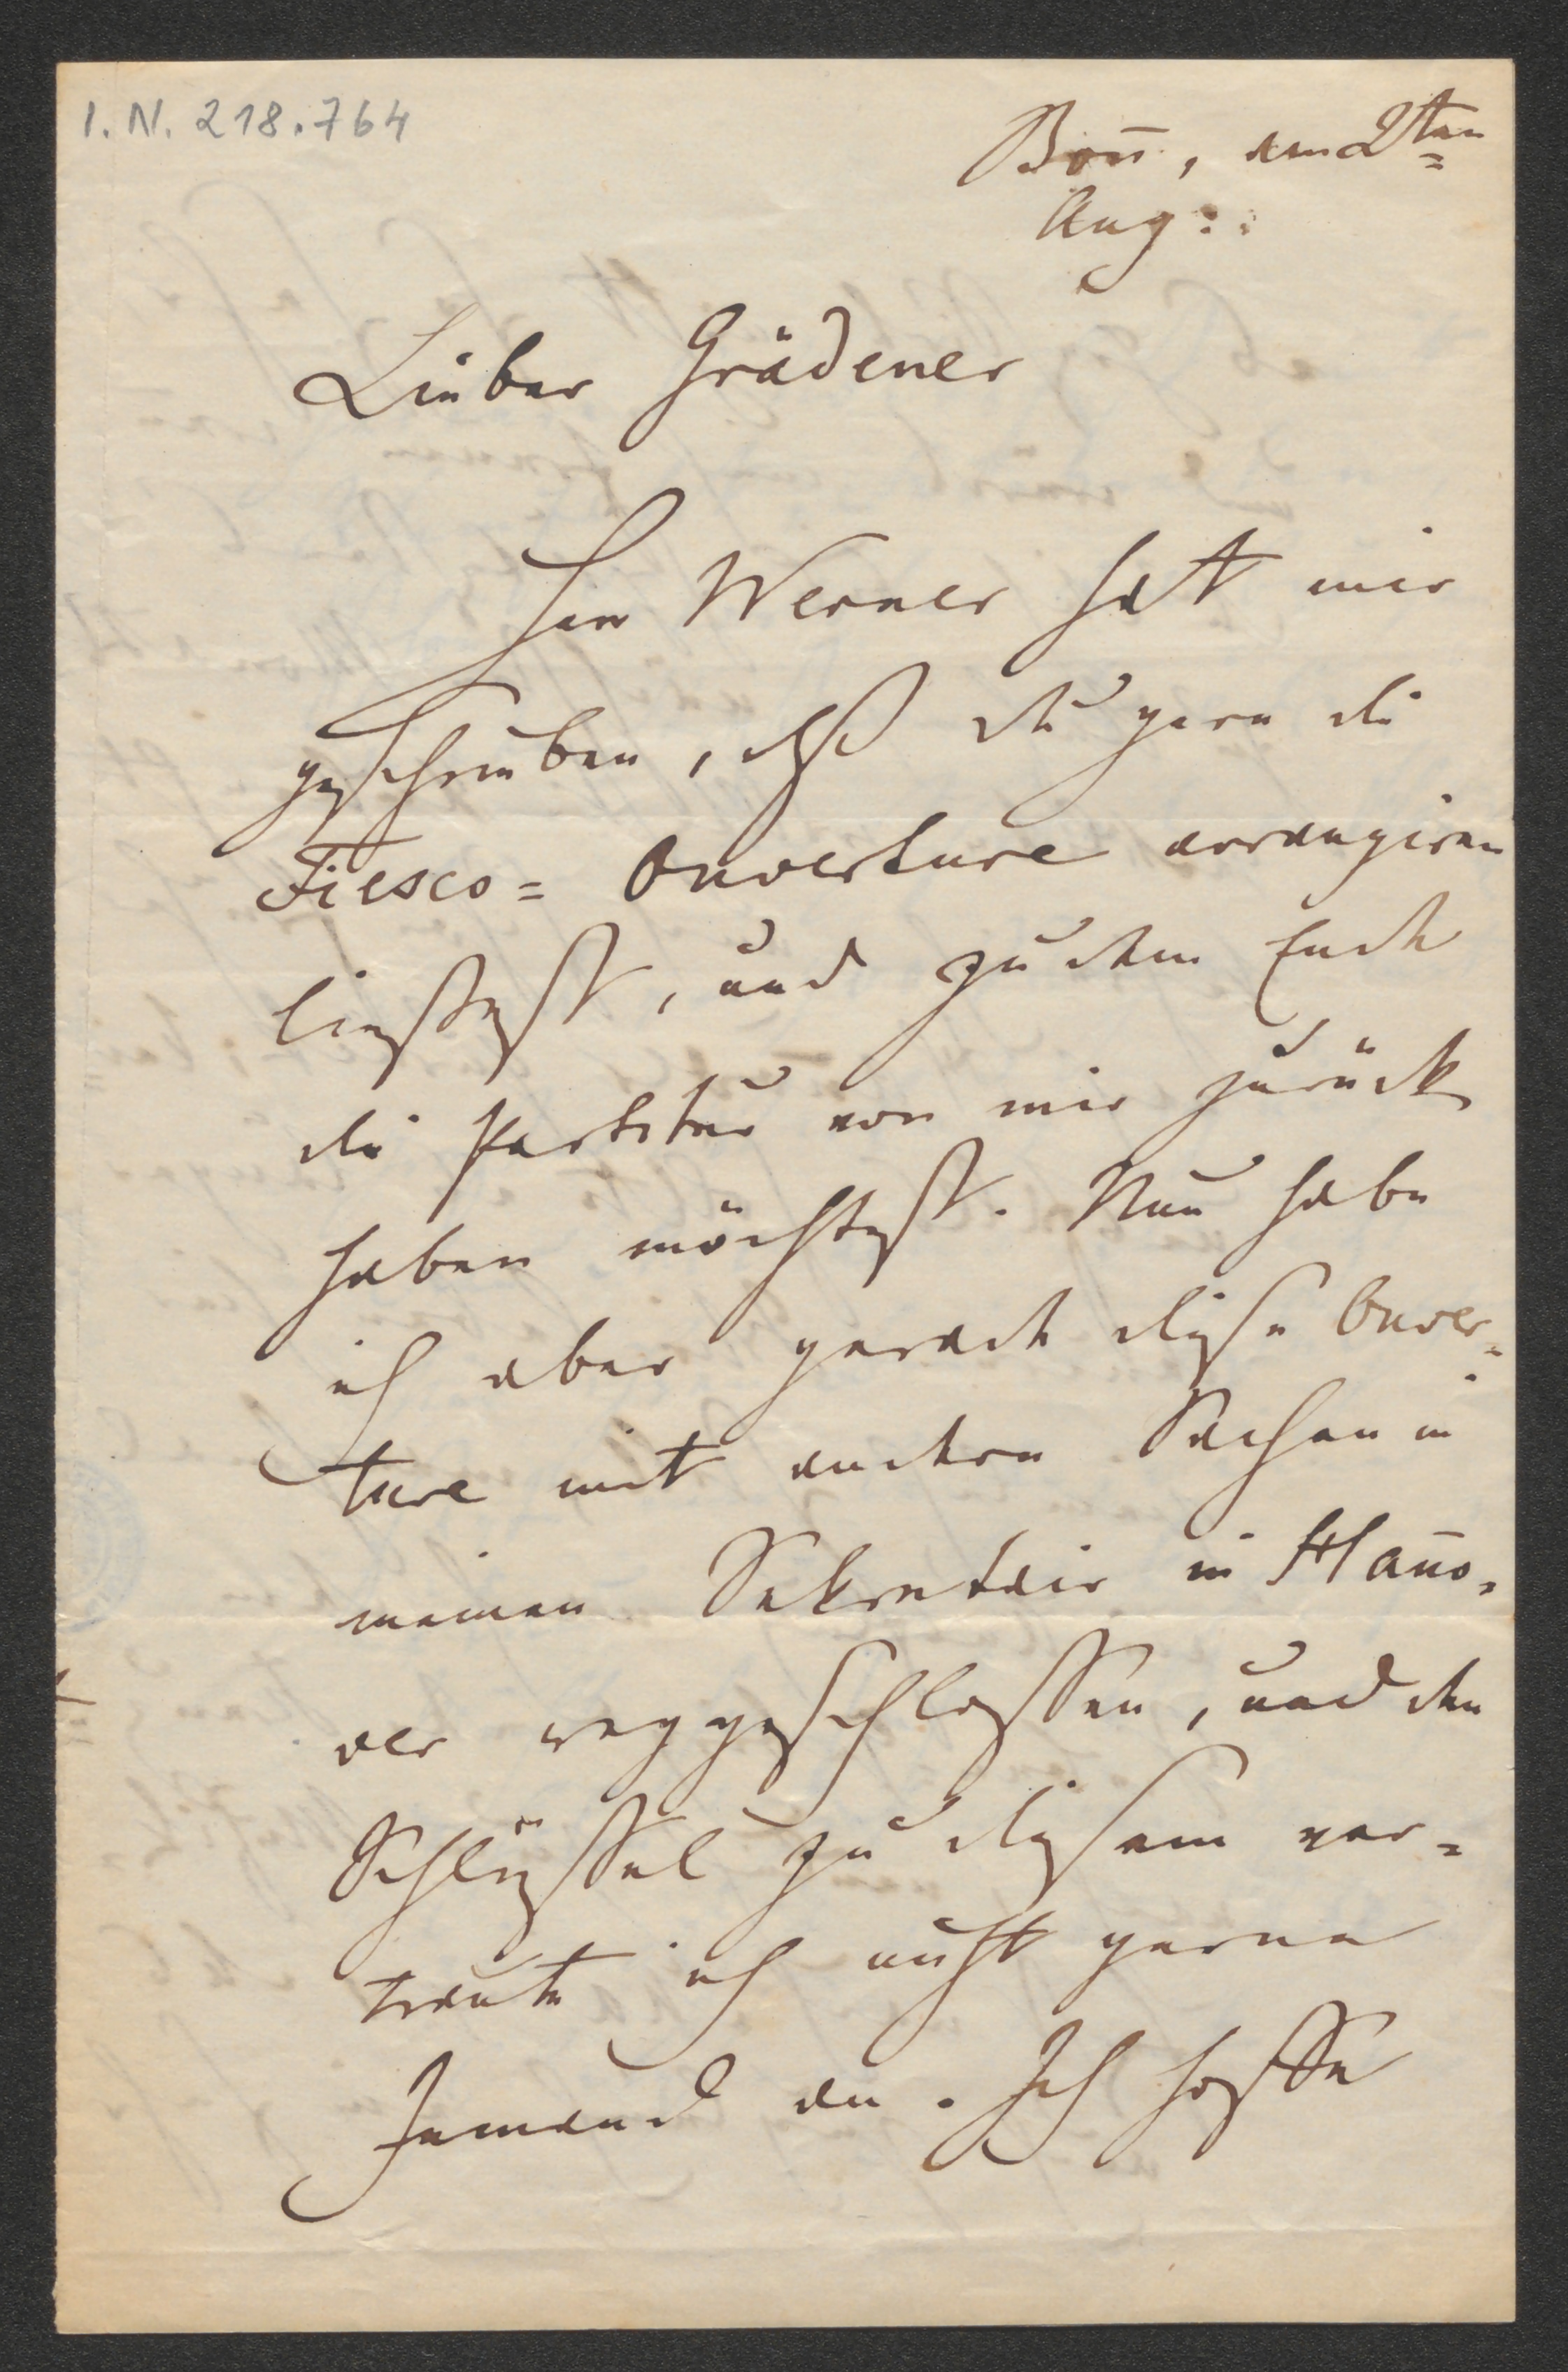 I. N. 218.764
Bon̄, den 2ten
Aug:
Lieber Grädener
Herr Werner hat mir
geschrieben, daß du gern die
Fiesco= Ouverture arrangiren
ließest, und zu dem Ende
die Partitur von mir zurück
haben möchtest. Nun habe
ich aber gerade diese Ouver=
ture mit andern Sachen in
meinem Sekretair in Han̄o=
ver weggeschlossen, und den
Schlüssel zu diesem ver=
traute ich nicht gerne
Jemand an. Ich hoffe